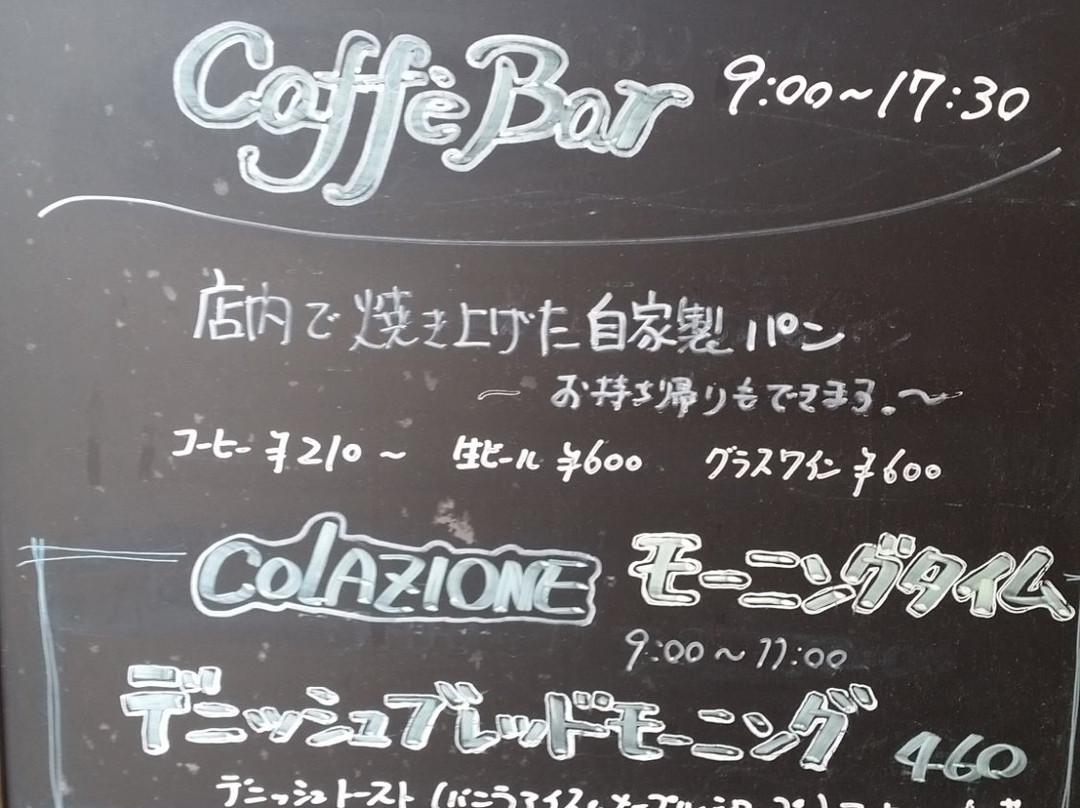 Caffè Bar 9:00~17:30
店内で焼き上げた自家製パン
~ お持ち帰りもできます。~
コーヒー ¥210~ 生ビール ¥600 グラスワイン ¥600
COLAZIONE モーニングタイム
9:00~11:00
デニッシュブレッドモーニング 460
デニッシュトースト(バニラアイス